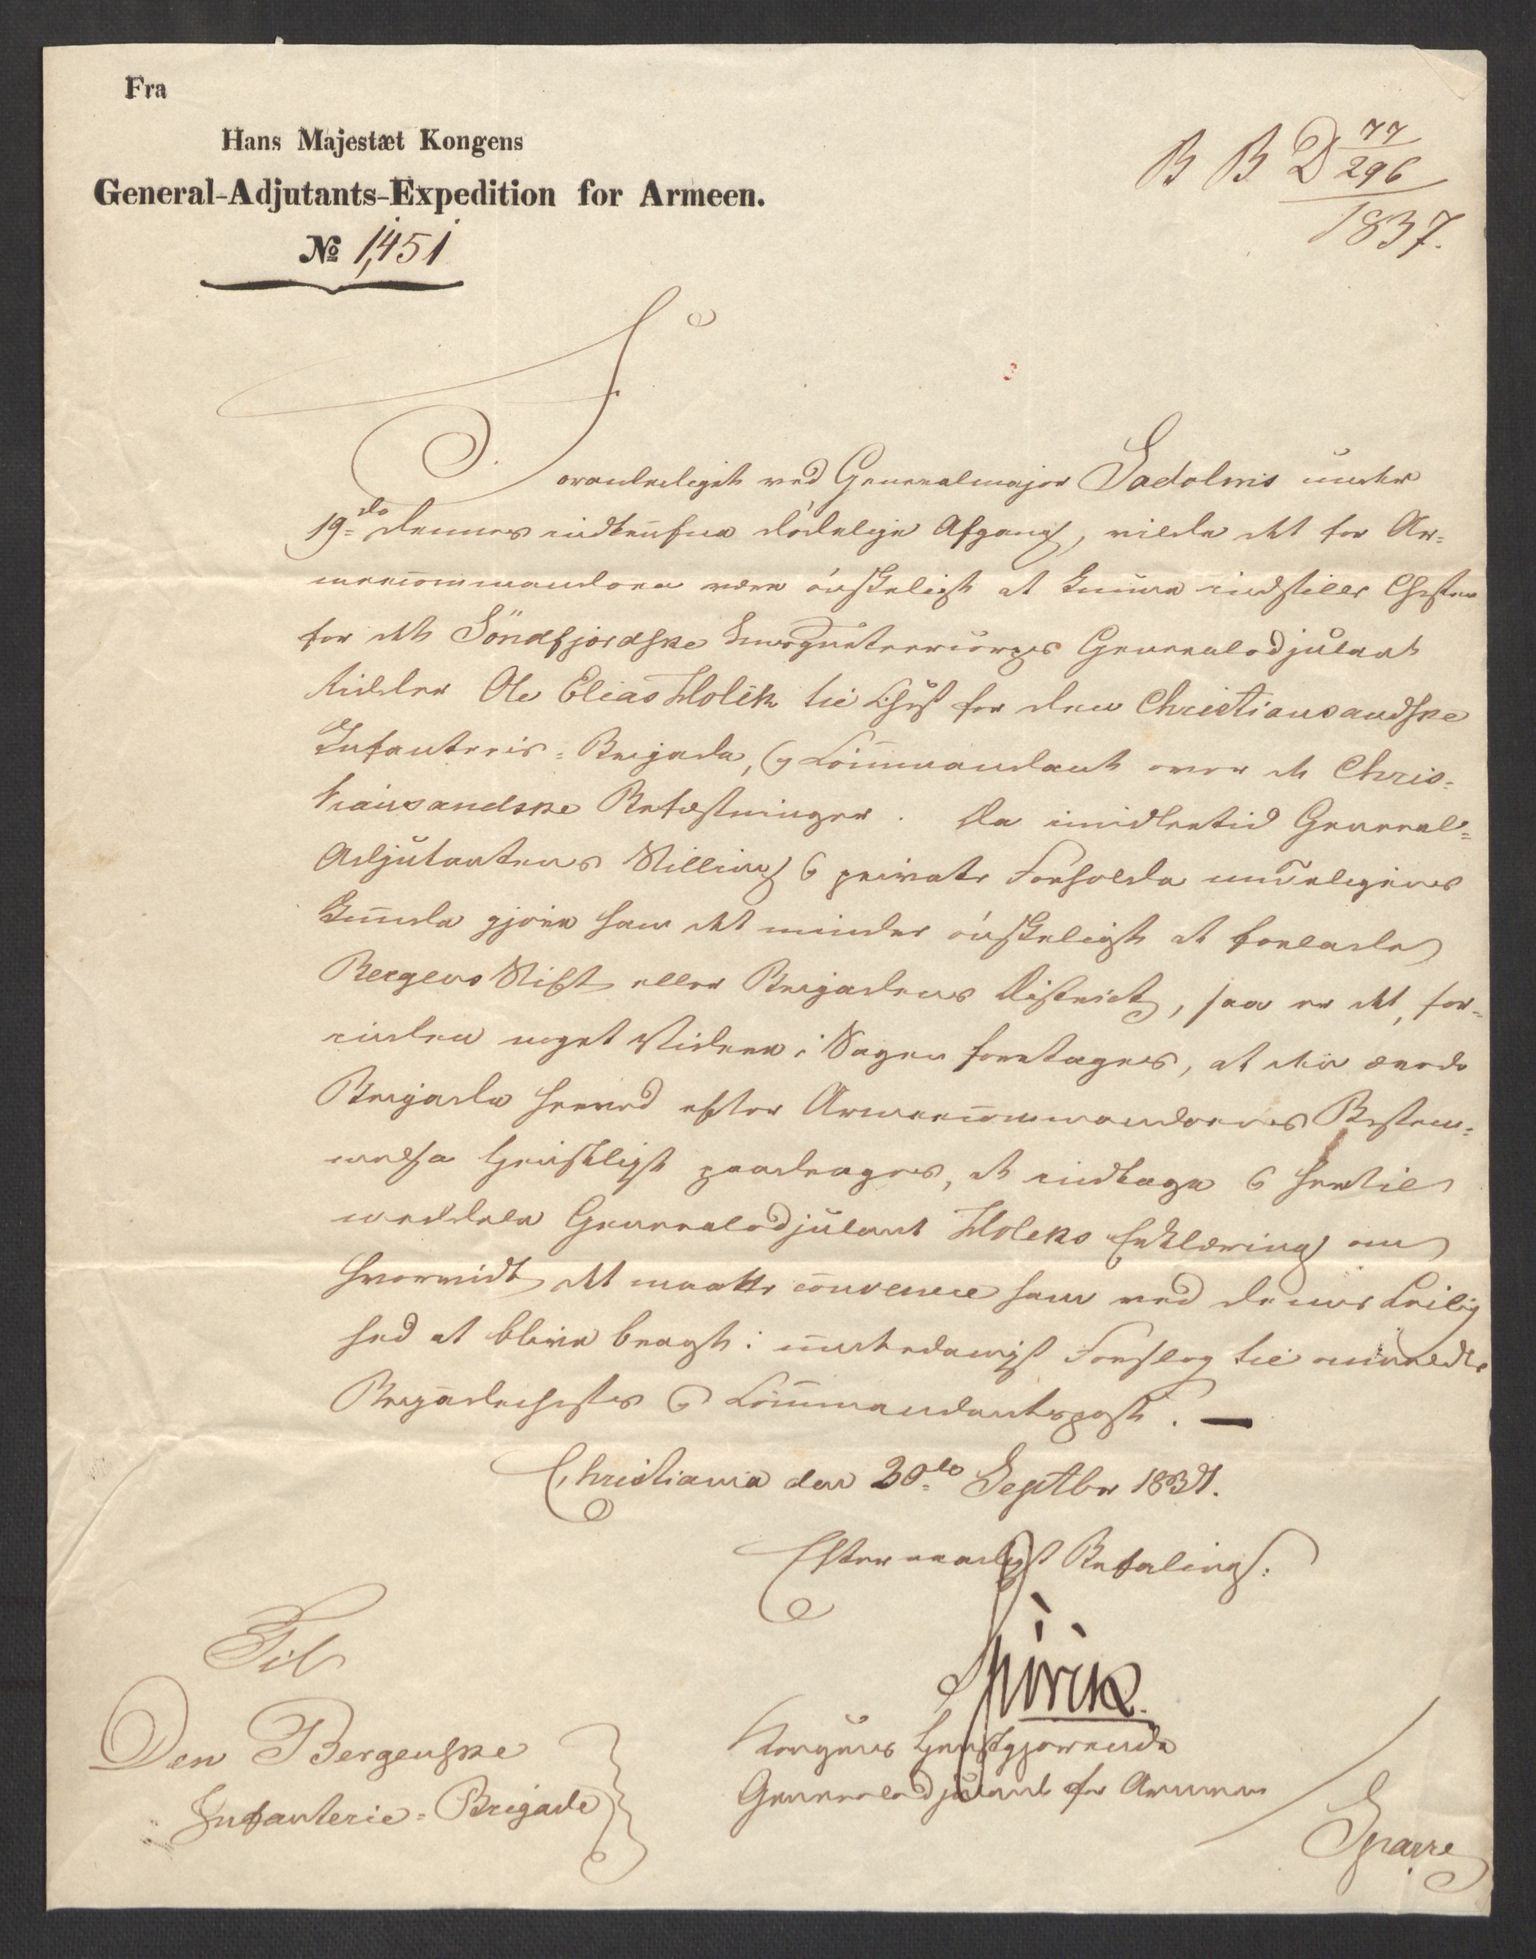 Fra
Hans Majestæt Kongens
General-Adjutants-Expedition for Armeen.
№ 1,451
B B D 77/296
1837.
Foranlediget ved Generalmajor Sadolins under
19de dennes indtrufne dødelige Afgang, vilde det for Ar-
meecommandoen være ønskeligt at kunne indstille Chefen
for det Søndfjordske Musqueteercorps Generaladjutant
Ridder Ole Elias Holck til Chef for den Christiansandske
Infanterie-Brigade, og Commandant over de Chris-
tiansandske Befæstninger. Da imidlertid General-
Adjutantens Stilling og private Forholde mueligens
kunde gjøre ham det mindre ønskeligt at forlade
Bergens Stift eller Brigadens District, saa er det, for-
inden noget Videre i Sagen foretages, at den ærede
Brigade herved efter Armeecommandoens Bestem-
melse tjenstligst paadrages, at indtage og hertil
meddele Generaladjutant Holcks Erklæring om
hvorvidt det maatte convenere ham ved denne Leilig
hed at blive bragt i underdanigst Forslag til anmeldte
Brigadechefs og Commandantspost. —
Christiania den 20de Septbr 1837.
Efter naadigst Befaling.
Kongens tjenstgjørende
Generaladjutant for Armeen
Sparre
Til
Den Bergenske
Infanterie-Brigade